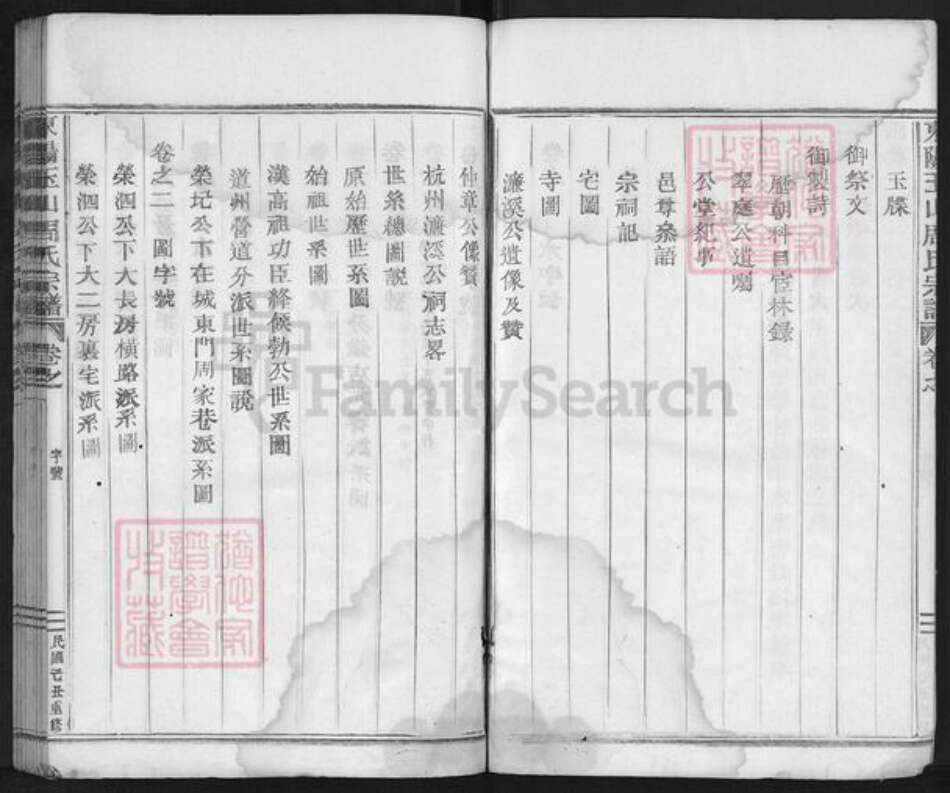 玉牒
御祭文
御製詩
歷朝科目宦林錄
翠庭公遺囑
公堂紀事
邑尊叅語
宗祠記
宅圖
寺圖
濂溪公遺像及贊
仲章公像贊
杭州濂溪公祠志畧
世系總圖說
原始歷世系圖
始祖世系圖
漢高祖功臣絳侯勃公世系圖
道州營道分派世系圖說
榮圮公下在城東門周家巷派系圖
卷之二 圖字號
榮泗公下大長房橫路派系圖
榮泗公下大二房裏宅派系圖
東陽玉山周氏宗譜
卷之
字號
民國己丑重修
東陽玉山周氏宗譜
卷之
FamilySearch